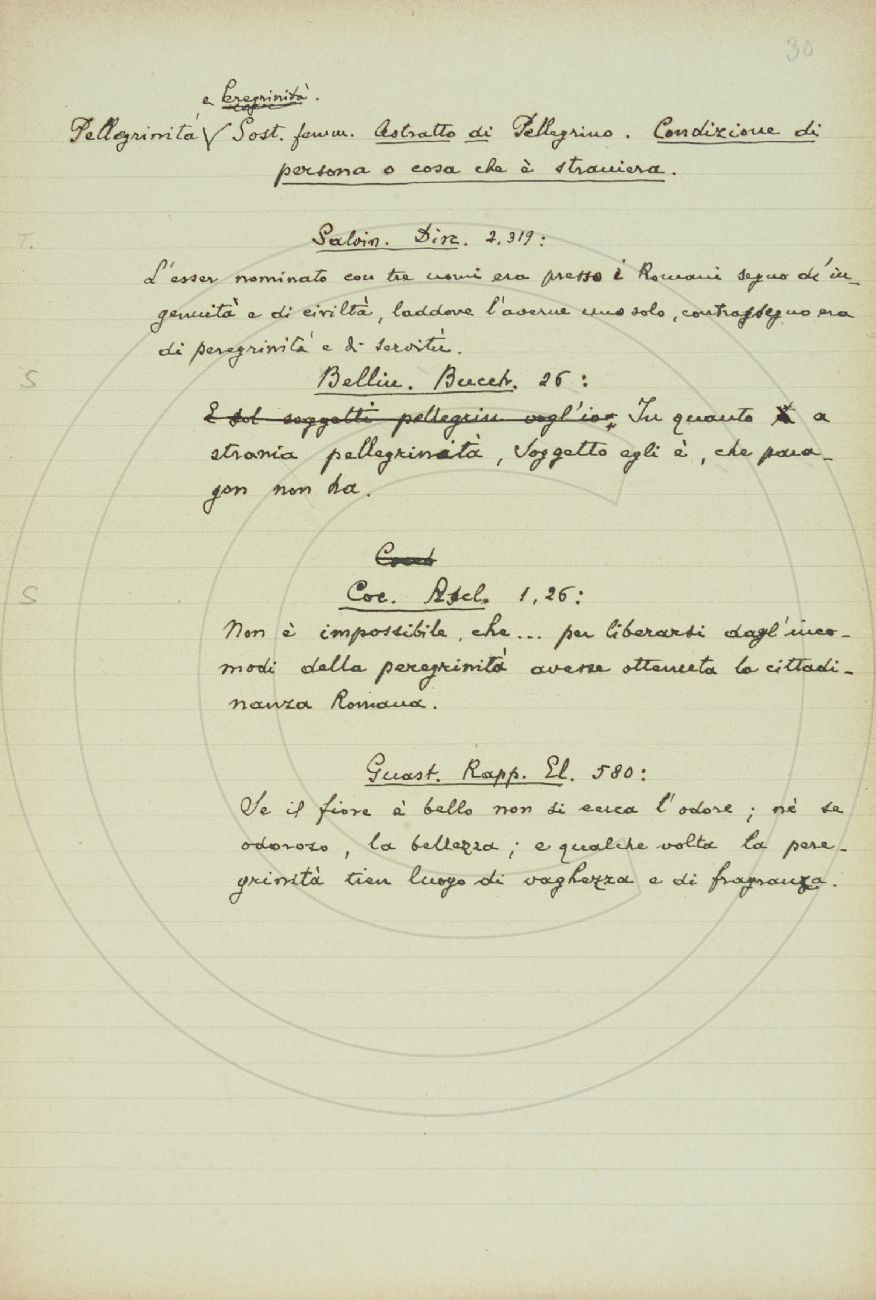 30
e Peregrinità.
Pellegrinità √ Sost. femm. Astratto di Pellegrino. Condizione di
persona o cosa che è straniera.
T.
Salvin. Disc. 2, 319:
L'esser nominato con tre nomi era presso i Romani segno d'in-
genuità e di civiltà, laddove l'averne uno solo, contrassegno era
di peregrinità e di servitù.
S
Bellin. Bucch. 26:
E sol soggetti pellegrin vogl'io: In quanto a
strania pellegrinità, Soggetto egli è, che para-
gon non ha.
S
Coc. Ascl. 1, 26:
Non è impossibile, che... per liberarsi dagl'inco-
modi della peregrinità avesse ottenuta la cittadi-
nanza Romana.
Guast. Rapp. El. 580:
Se il fiore è bello non si cerca l'odore; nè se
odoroso, la bellezza; e qualche volta la pere-
grinità tien luogo di vaghezza e di fragranza.